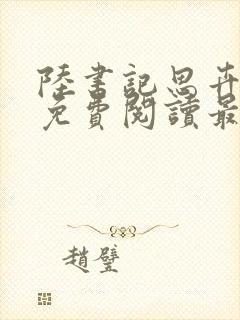 陸書記思卉
免費閱讀最
趙璧